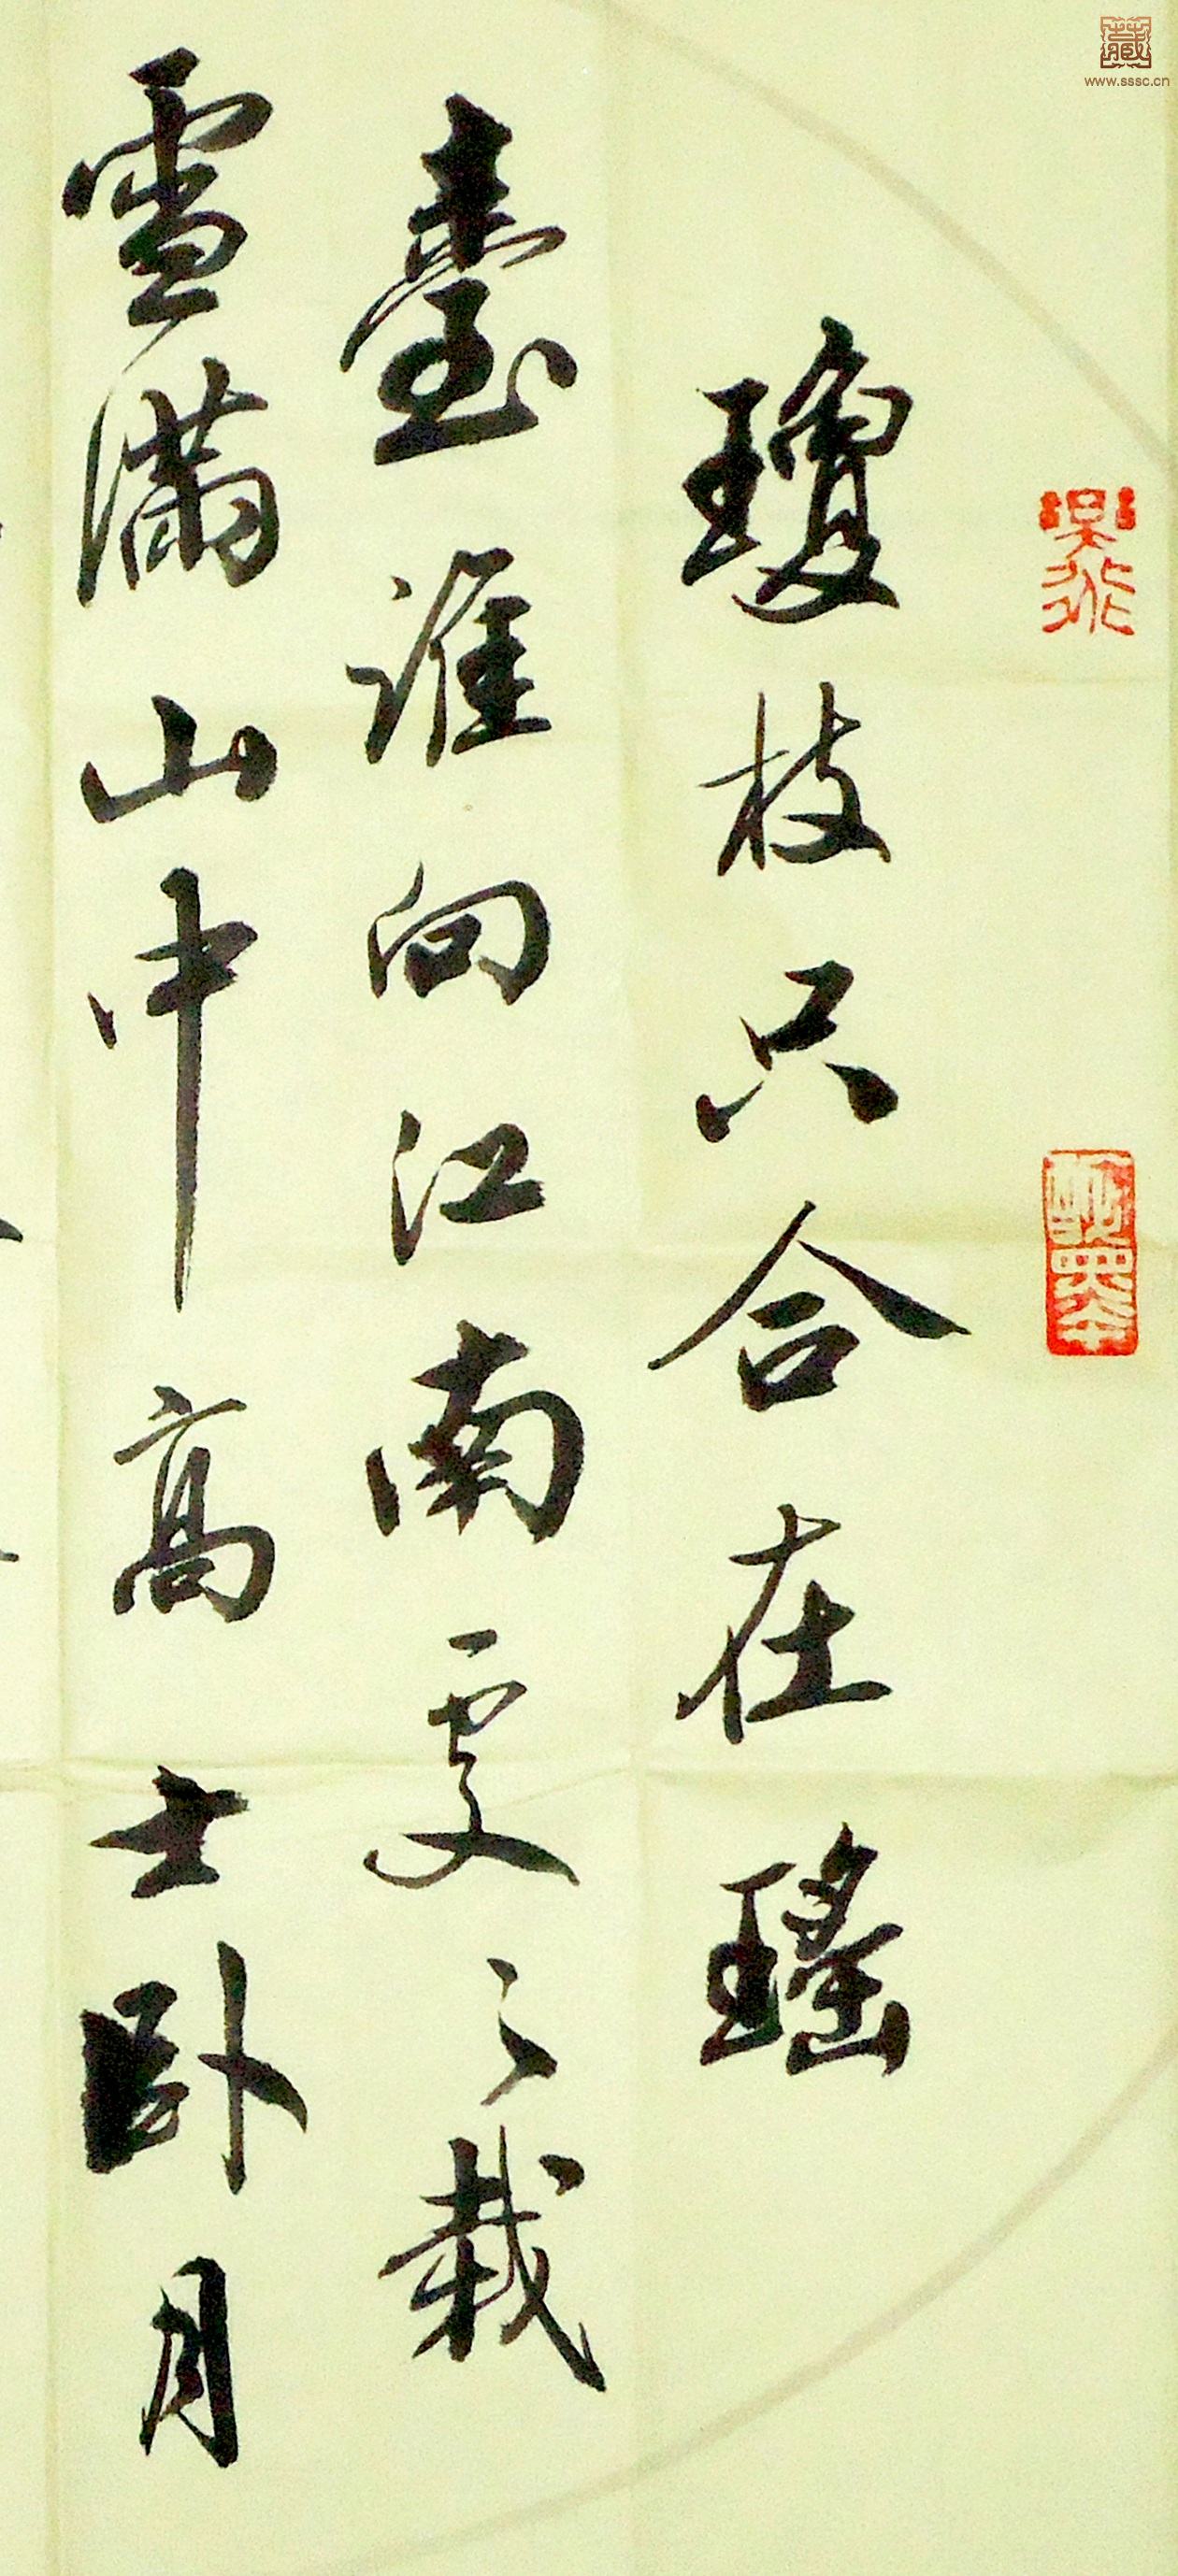 瓊枝只合在瑤
臺誰向江南處々栽
雪滿山中高士卧月
藏
www.sssc.cn